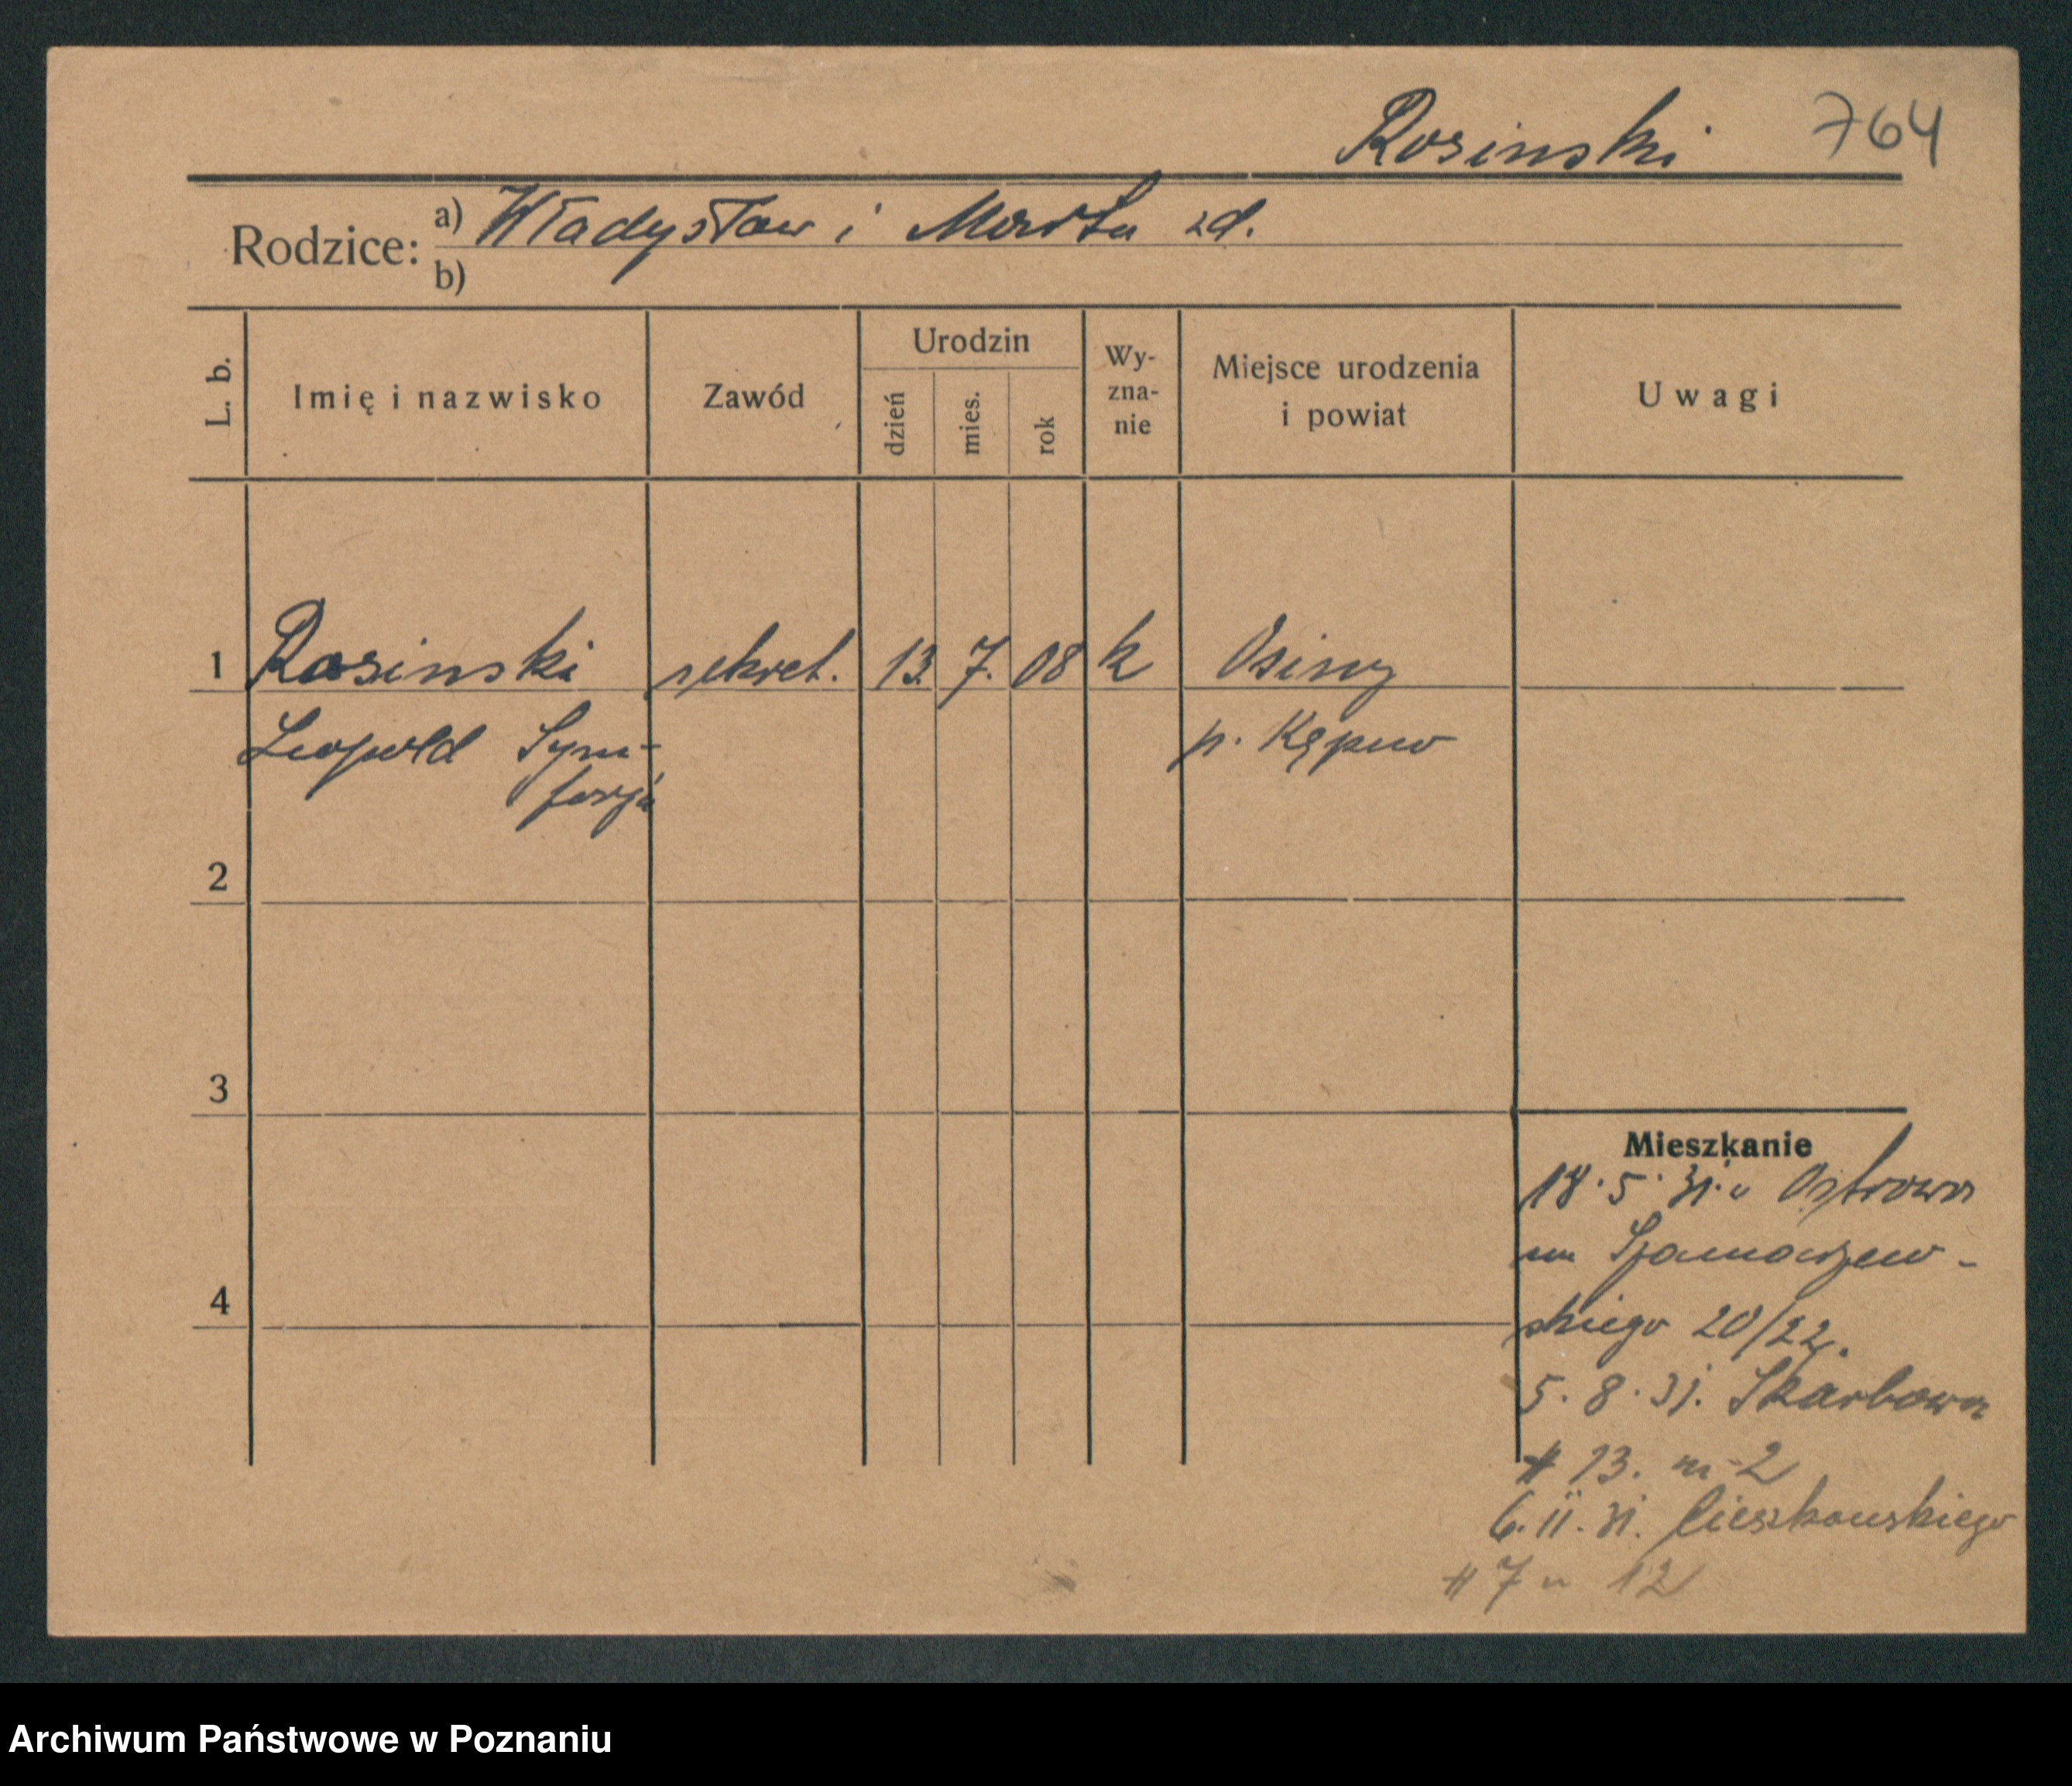 Rosinski 764
Rodzice: a) Władysław i Marta zd.
b)
L. b. Imię i nazwisko Zawód Urodzin dzień mies. rok Wy-zna-nie Miejsce urodzenia i powiat Uwagi
1 Rosinski sekret. 13. 7. 08 k Osiny
Leopold Sym- p. Kępno
forja
2
3
4
Mieszkanie
18.5.31. Ostrowa
Szamarzew-
skiego 20/22.
5.8.31. Skarbowa
# 13. m 2
6.11.31. Cieszkowskiego
# 7 12
Archiwum Państwowe w Poznaniu